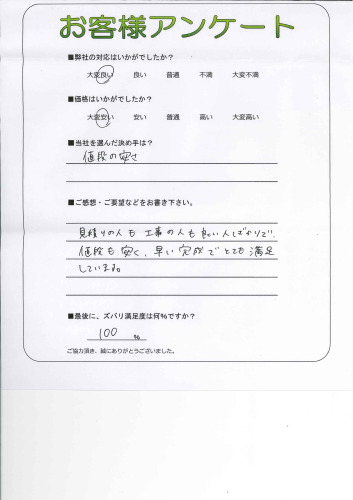 お客様アンケート
■弊社の対応はいかがでしたか？
大変良い　良い　普通　不満　大変不満
■価格はいかがでしたか？
大変安い　安い　普通　高い　大変高い
■当社を選んだ決め手は？
値段の安さ
■ご感想・ご要望などをお書き下さい。
見積りの人も工事の人も良い人ばかりで、
値段も安く、早い完成でとても満足
している。
■最後に、ズバリ満足度は何%ですか？
100 %
ご協力頂き、誠にありがとうございました。